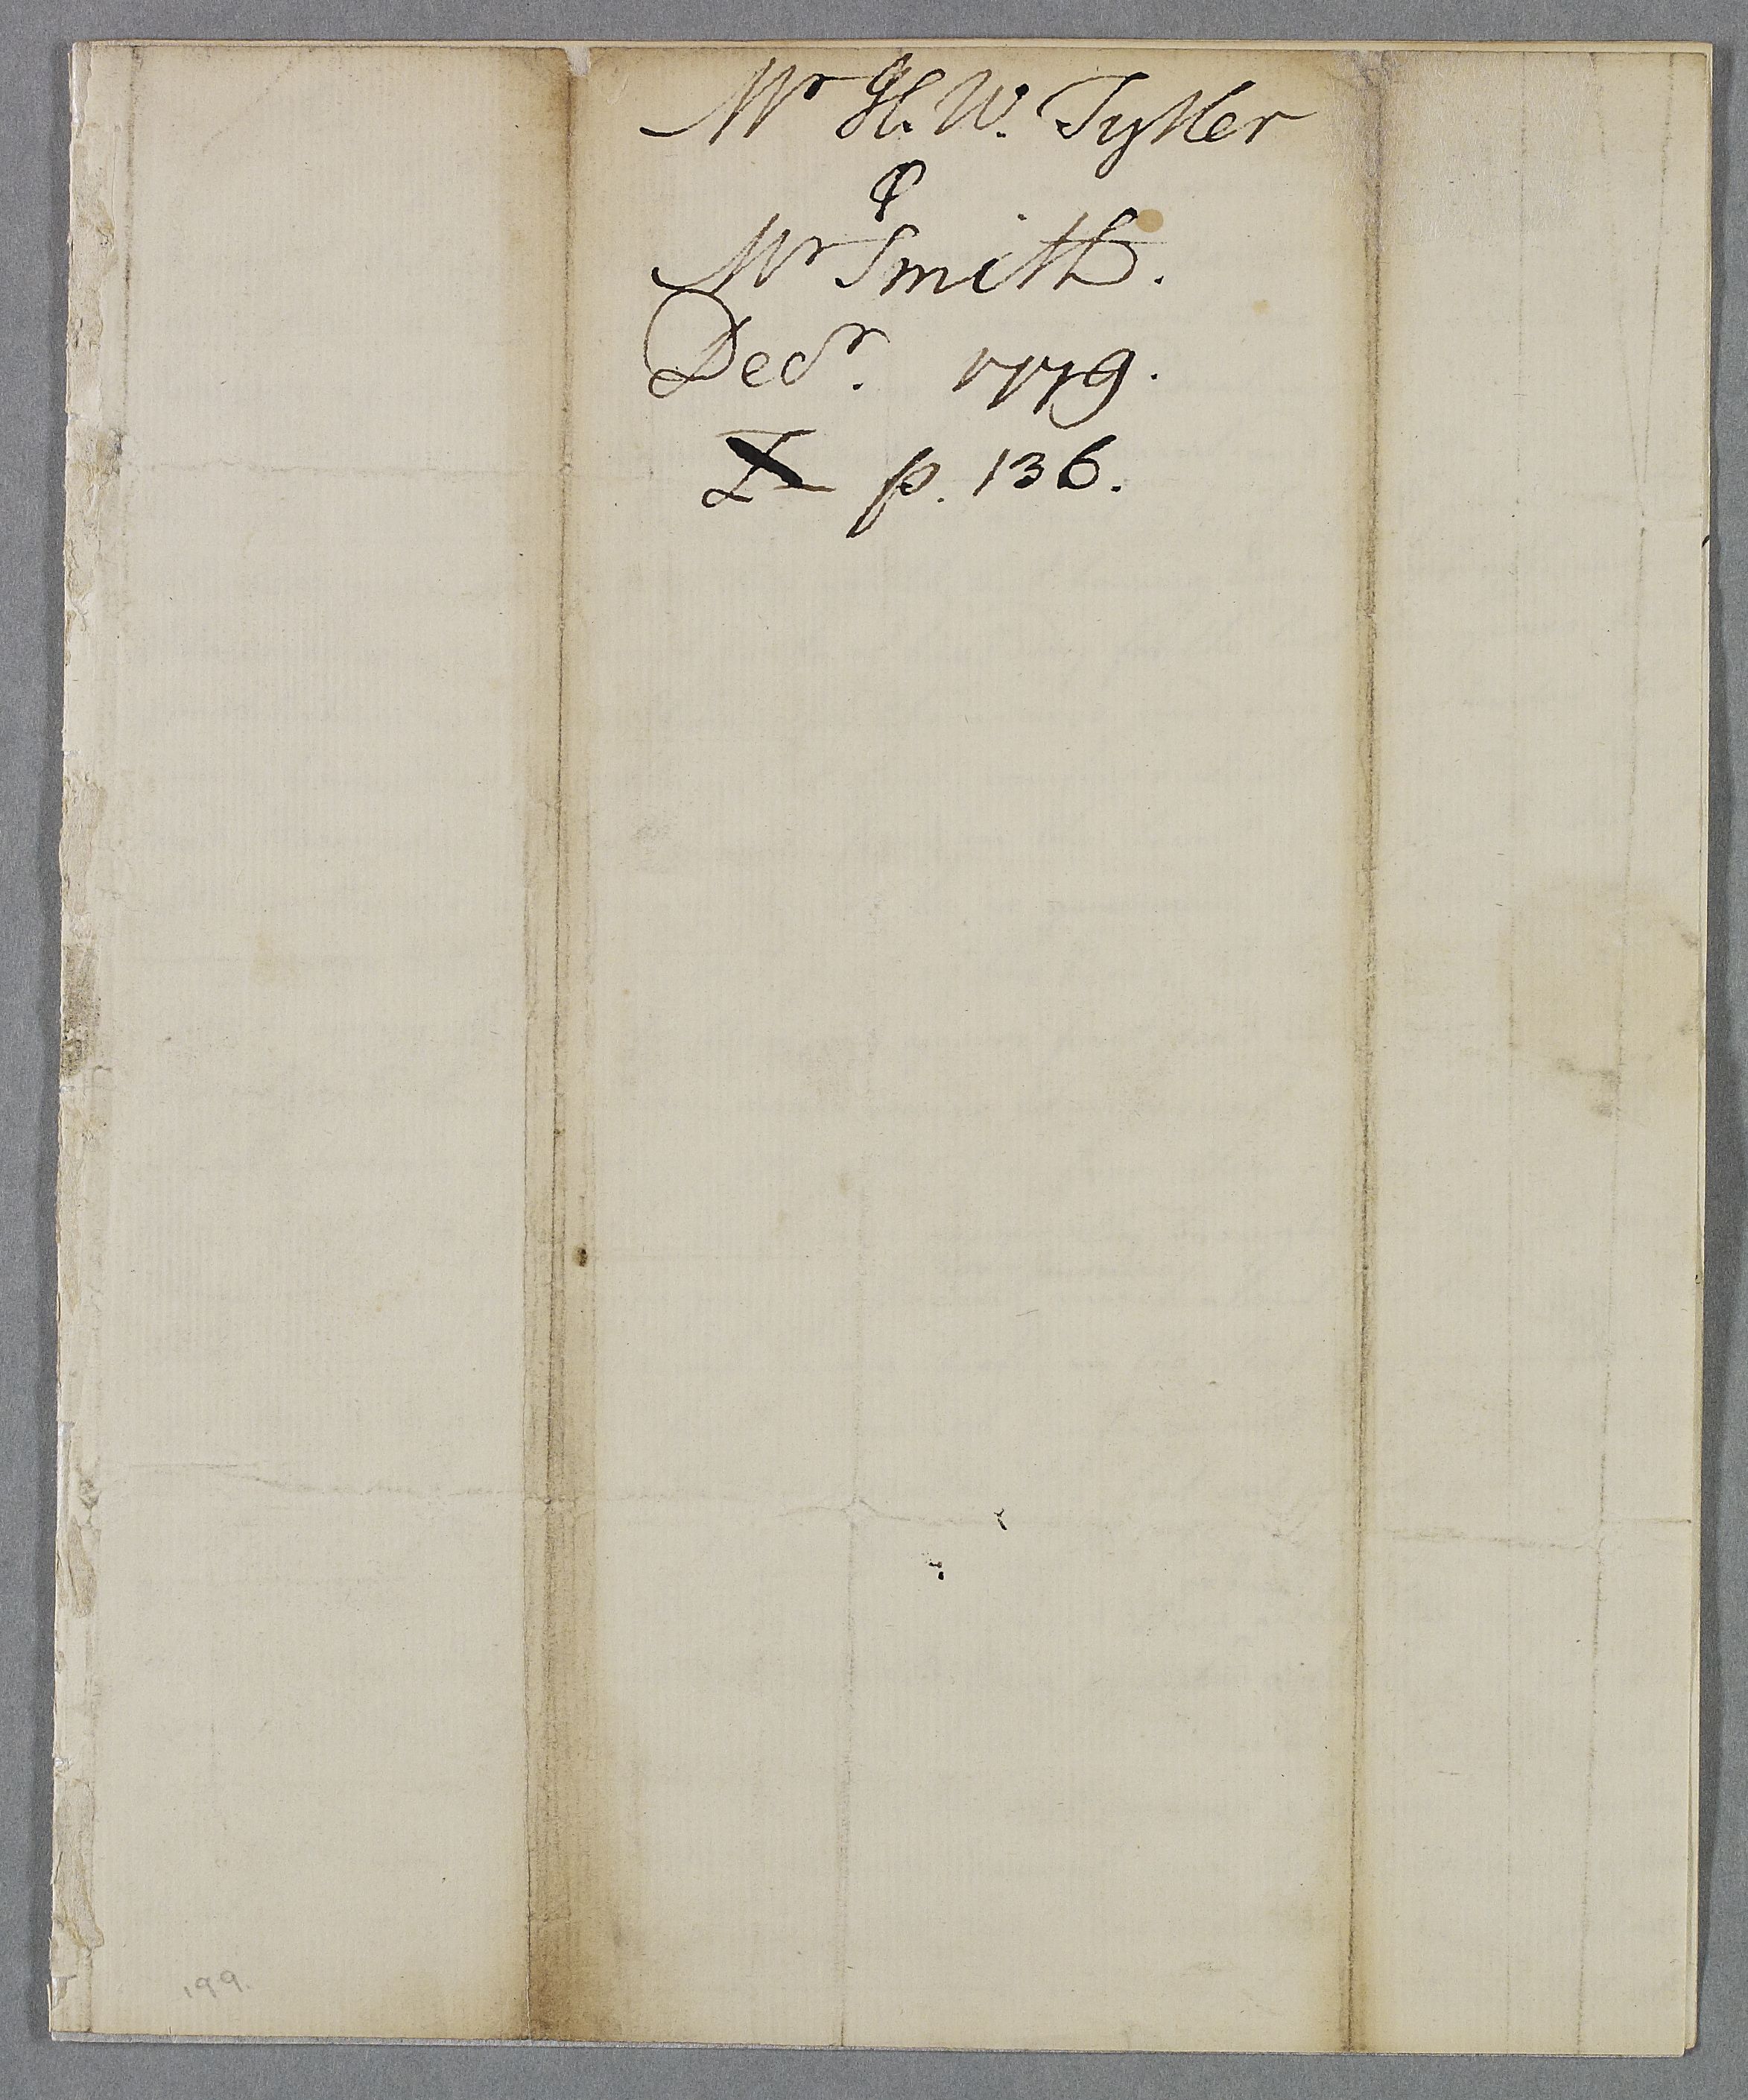 Mr H. W. Tytler
&
Mr Smith.
Decr. 1779.
p. 136.
199.